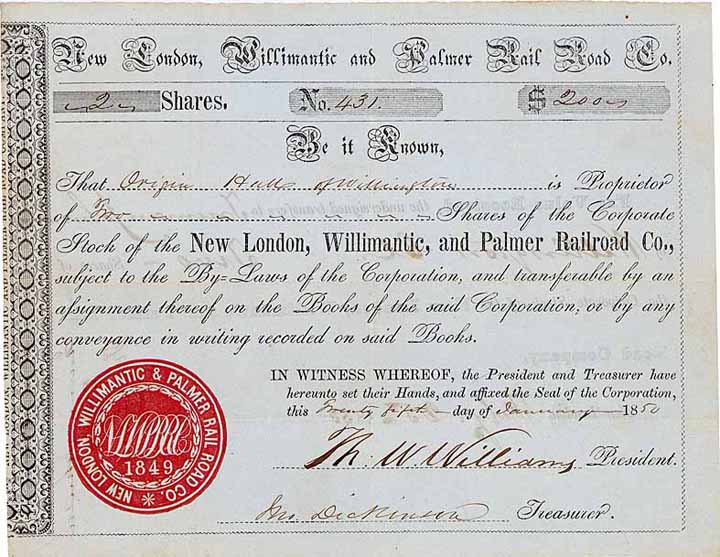 New London, Willimantic and Palmer Rail Road Co.
2 Shares. No. 431. $ 200
Be it Known,
That Origin Hall of Willington is Proprietor
of Two Shares of the Corporate
Stock of the New London, Willimantic, and Palmer Railroad Co.,
subject to the By=Laws of the Corporation, and transferable by an
assignment thereof on the Books of the said Corporation; or by any
conveyance in writing recorded on said Books.
IN WITNESS WHEREOF, the President and Treasurer have
hereunto set their Hands, and affixed the Seal of the Corporation,
this Twenty First day of January 1850
Th. W. Williams President.
Jno Dickinson Treasurer.
NEW LONDON, WILLIMANTIC & PALMER RAIL ROAD CO.
1849